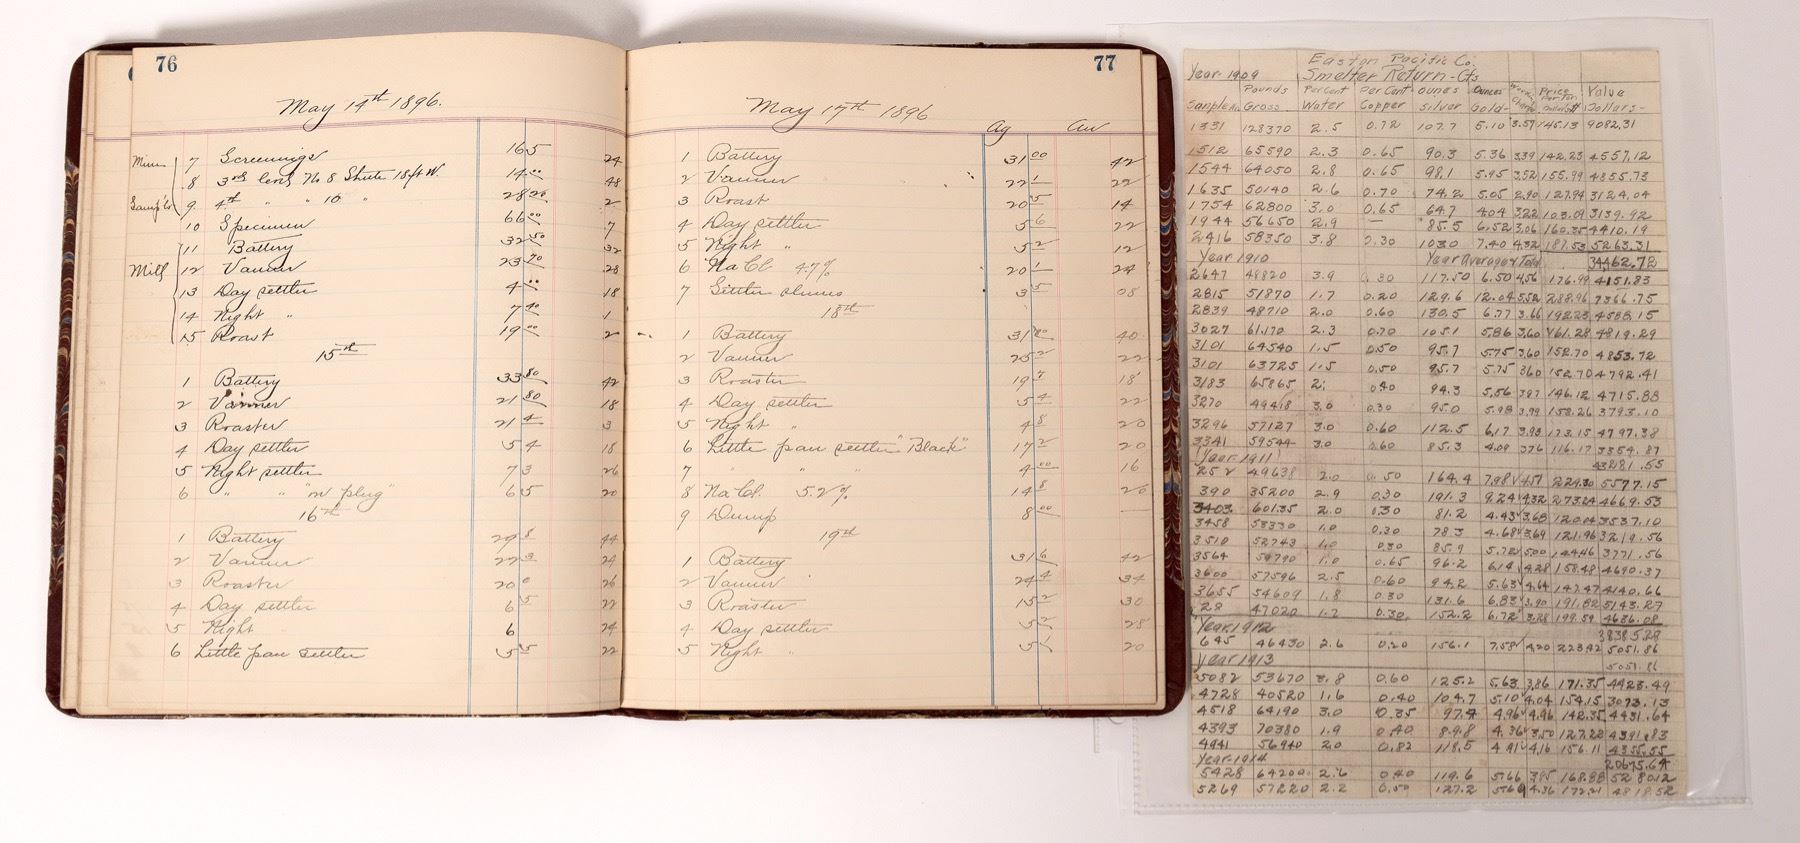 76
May 14th 1896.
Mine 7 Screenings 16 5 24
8 3rd Level No 8 Shute 18 ft W. 14 00 48
Sampls 9 4th " " 10 " 28 20 2
10 Specimen 66 00 7
11 Battery 32 50 32
Mill 12 Vanner 23 70 28
13 Day settler 4 00 18
14 Night " 7 40 1
15 Roast 19 00 2
15th
1 Battery 33 80 42
2 Vanner 21 80 18
3 Roaster 21 4 3
4 Day settler 5 4 18
5 Night settler 7 3 26
6 " " "w plug" 6 5 20
16th
1 Battery 29 8 44
2 Vanner 22 3 24
3 Roaster 20 0 26
4 Day settler 6 5 22
5 Night 6 24
6 Little pan settler 5 5 22
77
May 17th 1896
Ag Au
1 Battery 31 00 42
2 Vanner 22 1 22
3 Roast 20 5 14
4 Day settler 5 6 22
5 Night " 5 2 12
6 NaCl 4.7% 20 1 24
7 Settler slimes 3 5 08
18th
1 Battery 31 20 40
2 Vanner 25 2 22
3 Roaster 19 7 18
4 Day settler 5 4 22
5 Night " 4 8 20
6 Little pan settler "Black" 17 2 20
7 " " " " 4 00 16
8 NaCl. 5.2% 14 8 26
9 Dump 8 00 —
19th
1 Battery 31 6 42
2 Vanner 24 4 34
3 Roaster 15 2 30
4 Day settler 5 2 28
5 Night " 5 1 20
Easton Pacific Co.
Year 1909 Smelter Return - Cts
Sample No. Pounds Gross Per Cent Water Per Cent Copper ounes silver Ounces Gold - Price Per Ton Dollars Value Dollars -
1331 128370 2.5 0.72 107.7 5.10 3.57 145.13 9082.31
1512 65590 2.3 0.65 90.3 5.36 3.39 142.23 4557.12
1544 64050 2.8 0.65 98.1 5.95 3.52 155.99 4855.73
1635 50140 2.6 0.70 74.2 5.05 2.90 127.94 3124.04
1754 62800 3.0 0.65 64.7 4.04 3.22 103.09 3139.92
1944 56650 2.9 — 85.5 6.52 3.06 160.35 4410.19
2416 58350 3.8 0.30 103.0 7.40 4.32 187.53 5263.31
Year 1910 Year Average & Total 34462.72
2647 48820 3.9 0.30 117.50 6.50 4.56 176.99 4151.83
2815 51870 1.7 0.20 129.6 12.04 5.52 288.96 7366.75
2839 48710 2.0 0.60 130.5 6.77 3.66 192.23 4588.15
3027 61170 2.3 0.70 105.1 5.86 3.60 161.28 4819.29
3101 64540 1.5 0.50 95.7 5.75 3.60 152.70 4853.72
3101 63725 1.5 0.50 95.7 5.75 3.60 152.70 4792.41
3183 65865 2. 0.40 94.3 5.56 3.87 146.12 4715.88
3270 49418 3.0 0.30 95.0 5.98 3.99 158.26 3793.10
3296 57127 3.0 0.60 112.5 6.17 3.93 173.15 4797.38
3341 59544 3.0 0.60 85.3 4.09 3.76 116.17 3354.87
(Year 1911) 43281.55
252 49638 2.0 0.50 164.4 7.98 4.57 229.30 5577.15
390 35200 2.9 0.30 191.3 9.24 4.32 273.24 4669.53
3403 60135 2.0 0.30 81.2 4.43 3.68 120.04 3537.10
3458 53330 1.0 0.30 78.3 4.68 3.69 121.96 3219.56
3510 52743 1.0 0.30 85.9 5.72 5.00 144.46 3771.56
3564 59790 1.0 0.65 96.2 6.14 4.28 158.48 4690.37
3600 57596 2.5 0.60 94.2 5.63 4.64 147.47 4140.66
3655 54609 1.8 0.30 131.6 6.83 3.90 191.82 5143.27
28 47020 1.2 0.30 152.2 6.72 3.28 199.59 4636.08
Year 1912 38385.28
645 46430 2.6 0.20 156.1 7.58 4.20 223.42 5051.86
Year 1913 5051.86
5082 53670 3.8 0.60 125.2 5.63 3.86 171.35 4423.49
4728 40520 1.6 0.40 104.7 5.10 4.04 154.15 3073.13
4518 64190 3.0 0.35 97.4 4.96 4.96 142.35 4431.64
4393 70380 1.9 0.40 89.8 4.36 3.50 127.22 4391.83
4941 56940 2.0 0.82 118.5 4.91 4.16 156.11 4355.55
Year 1914 20675.64
5428 64200 2.6 0.40 119.6 5.66 3.85 168.88 5280.12
5269 57220 2.2 0.50 127.2 5.60 4.36 172.21 4818.52